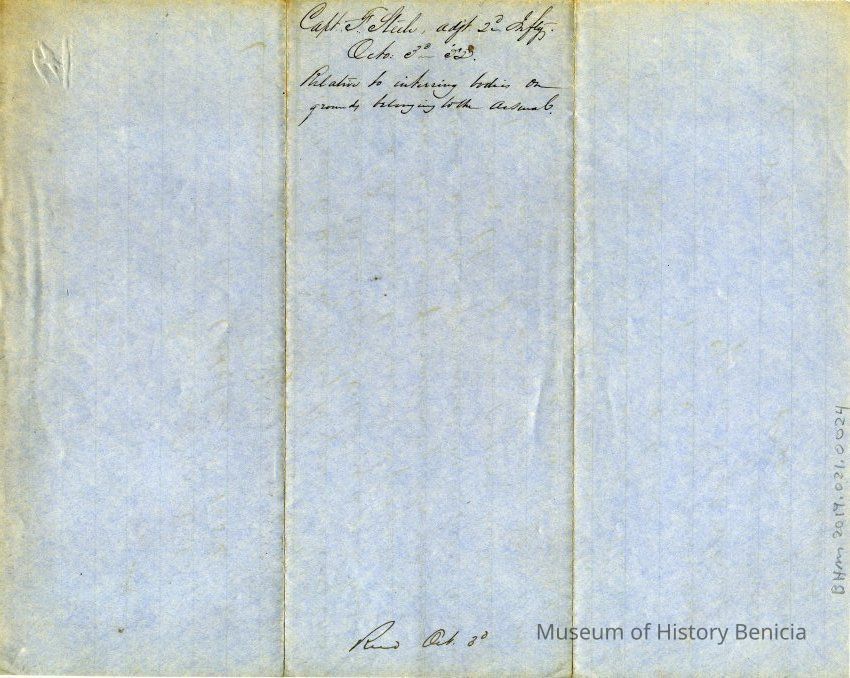 Capt. F. Steele, adjt 2d Infty.
Octo. 3d '52.
Relative to interring bodies on
grounds belonging to the Arsenal.
Recd Oct. 3d
Museum of History Benicia
BHM 2019.021.0024